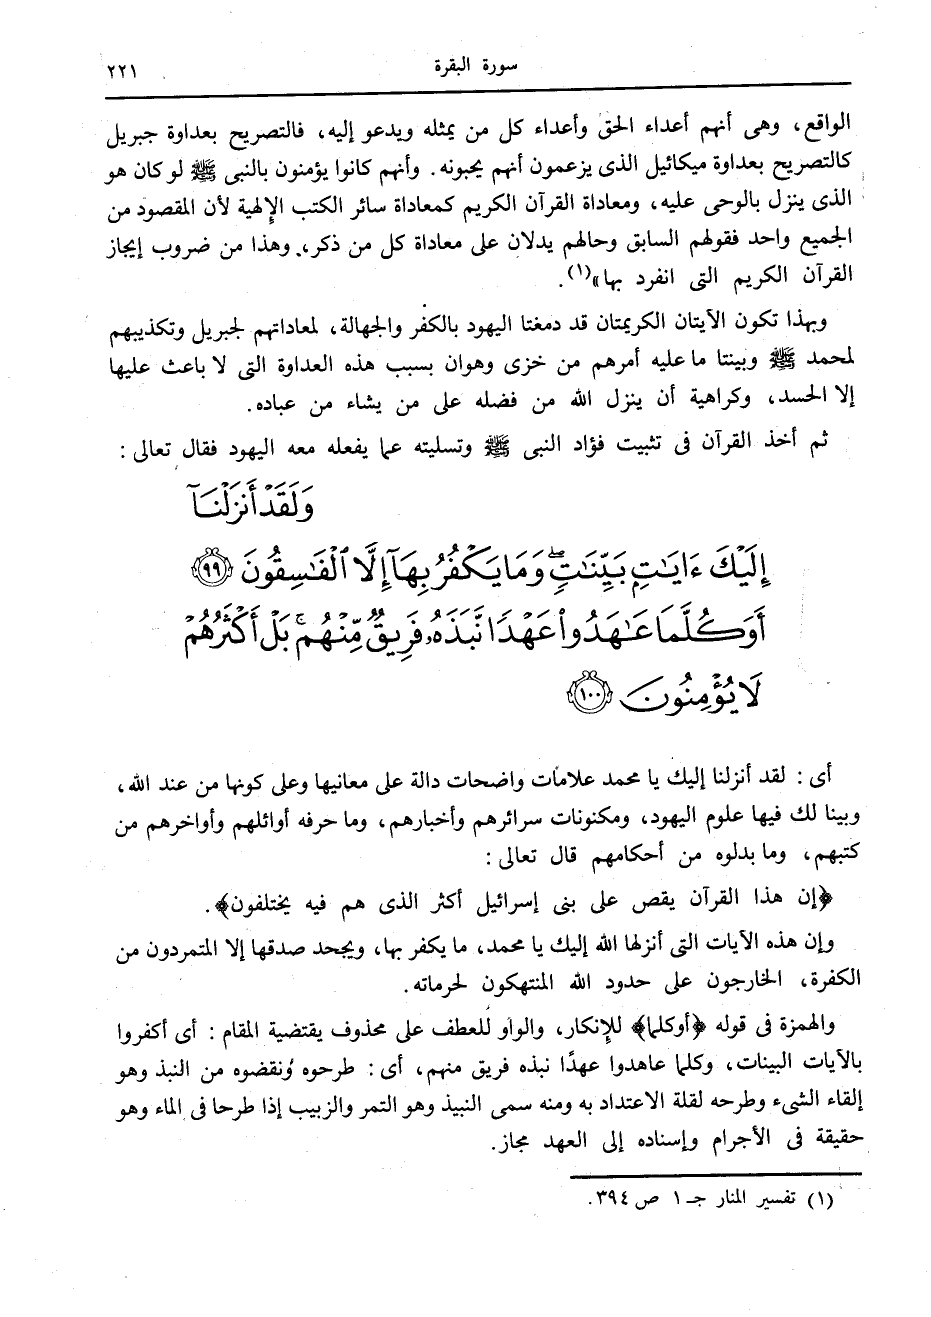 سورة البقرة ٢٢١
الواقع، وهى أنهم أعداء الحق وأعداء كل من يمثله ويدعو إليه، فالتصريح بعداوة جبريل
كالتصريح بعداوة ميكائيل الذى يزعمون أنهم يحبونه. وأنهم كانوا يؤمنون بالنبى ﷺ لو كان هو
الذى ينزل بالوحى عليه، ومعاداة القرآن الكريم كمعاداة سائر الكتب الإلهية لأن المقصود من
الجميع واحد فقولهم السابق وحالهم يدلان على معاداة كل من ذكر، وهذا من ضروب إيجاز
القرآن الكريم التى انفرد بها»(١).
وبهذا تكون الآيتان الكريمتان قد دمغتا اليهود بالكفر والجهالة، لمعاداتهم لجبريل وتكذيبهم
لمحمد ﷺ وبينتا ما عليه أمرهم من خزى وهوان بسبب هذه العداوة التى لا باعث عليها
إلا الحسد، وكراهية أن ينزل الله من فضله على من يشاء من عباده.
ثم أخذ القرآن فى تثبيت فؤاد النبى ﷺ وتسليته عما يفعله معه اليهود فقال تعالى :
وَلَقَدْ أَنزَلْنَآ
إِلَيْكَ ءَايَٰتٍۭ بَيِّنَٰتٍۖ وَمَا يَكْفُرُ بِهَآ إِلَّا ٱلْفَٰسِقُونَ ۝٩٩
أَوَكُلَّمَا عَٰهَدُوا۟ عَهْدًا نَّبَذَهُۥ فَرِيقٌ مِّنْهُمۚ بَلْ أَكْثَرُهُمْ
لَا يُؤْمِنُونَ ۝١٠٠
أى : لقد أنزلنا إليك يا محمد علامات واضحات دالة على معانيها وعلى كونها من عند الله،
وبينا لك فيها علوم اليهود، ومكنونات سرائرهم وأخبارهم، وما حرفه أوائلهم وأواخرهم من
كتبهم، وما بدلوه من أحكامهم قال تعالى :
﴿إن هذا القرآن يقص على بنى إسرائيل أكثر الذى هم فيه يختلفون﴾.
وإن هذه الآيات التى أنزلها الله إليك يا محمد، ما يكفر بها، ويجحد صدقها إلا المتمردون من
الكفرة، الخارجون على حدود الله المنتهكون لحرماته.
والهمزة فى قوله ﴿أوكلما﴾ للإنكار، والواو للعطف على محذوف يقتضية المقام : أى أكفروا
بالآيات البينات، وكلما عاهدوا عهدًا نبذه فريق منهم، أى : طرحوه ونقضوه من النبذ وهو
إلقاء الشىء وطرحه لقلة الاعتداد به ومنه سمى النبيذ وهو التمر والزبيب إذا طرحا فى الماء وهو
حقيقة فى الأجرام وإسناده إلى العهد مجاز.
(١) تفسير المنار جـ ١ ص ٣٩٤.